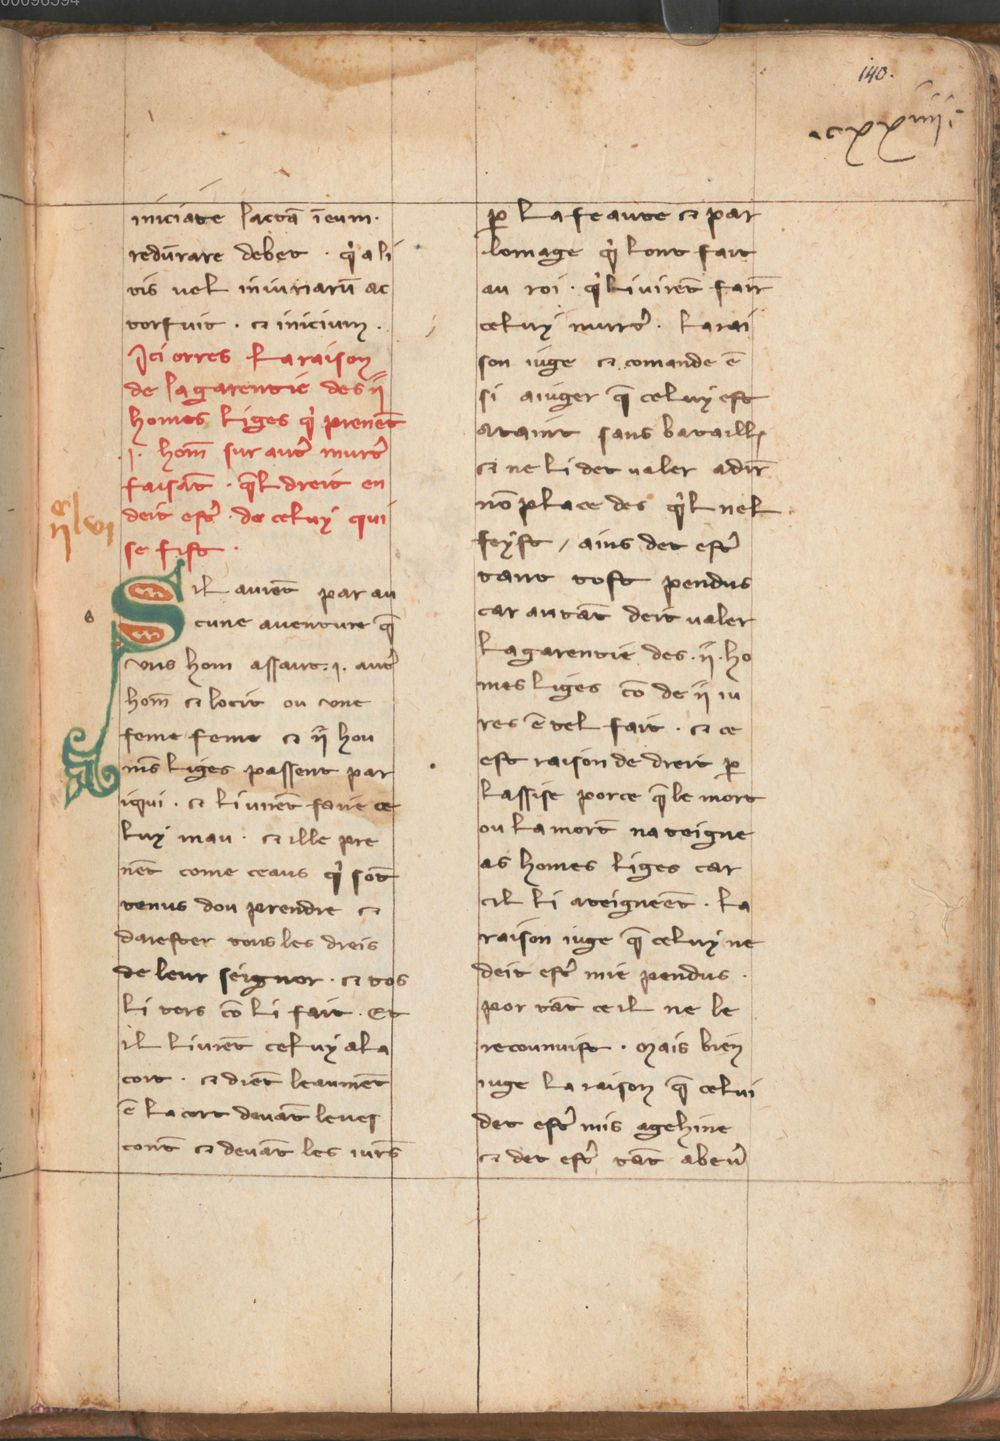 00096594
140.
.cxxiiii.
iniciate lactā ī eum.
redūrare debet . q̇ ali
tis uel iniuriarū ac
tor fuit . ⁊ inicium .
Ici orres la raison
de la garentie des ii
homes liges q̇ prenēt
.i. hom̄ sur aut̄ murt̄
faisāt . q̄l dreit en
deit estr̄ . de celuy qui
se fist .
S il auiēt par au
cune auenture q̄
vns hom assaut .i. aut̄
hom̄ ⁊ locit ou vne
feme feme ⁊ ii hou
ms̄ liges passent par
iqui . ⁊ li uirēt faire ce
luy mau . ⁊ ille pre
nēt come ceaus q̇ sōt
tenus dou prendre ⁊
darester tous les dreis
de leur seignor . ⁊ tos
li tors cō li fait . Et
il liurēt celuy a la
cort . ⁊ diēt leaumēt
ē la cort deuāt leues
cont̄ ⁊ deuāt les iurs̄
ꝑ la feaute ⁊ par
lomage q̇ lont fait
au roi . q̇l i uirēt fair̄
celuy murt̄ . La rai
son iuge ⁊ comande ē
si aiuger q̄ celuy est
ataint sans bataille
⁊ ne li det ualer adir̄
nō place des q̇l nel
feyst / ains det estr̄
tant tost pendus
car autāt deit ualer
la garentie des .ii. ho
mes liges cō de ii iu
res ē tel fait . ⁊ ce
est raison de dreit ꝑ
lassise porce q̄ le mort
ou la mort na teigne
as homes liges car
cil li ateignēt . la
raison iuge q̄ celuy ne
deit estr̄ mie pendus .
por tāt ce il ne le
recounuist . Mais bien
iuge la raison q̄ celui
det estr̄ mis a gehine
⁊ det estr̄ tāt abeur̄